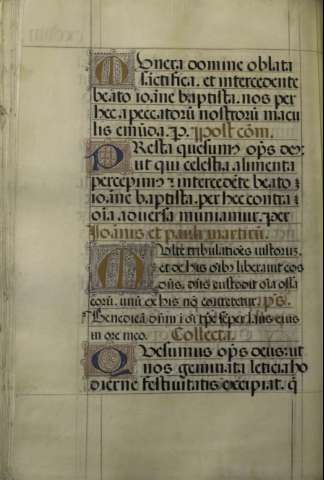 Munera domine oblata
sc̄tifica. et intercedente
beato ioāne baptista. nos per
hec a peccatorū nostrorū macu
lis emūda. p. post cōm.
Presta quesum9 op̄s deus
ut qui celestia alimenta
percepim9 ⁊ intercedēte beato
ioāne baptista. per hec contra
oīa aduersa muniamur. per
Joannis et pauli martirū.
Multe tribulatiōes iustorū.
et de his oīb9 liberauit eos
dūs. dūs custodit oīa ossa
eorū. unū ex his nō conteretur. ps.
Benedicā dūm ī oī tp̄e semper laus eius
in ore meo. Collecta.
Quesumus op̄s deus: ut
nos geminata leticia ho
dierne festiuitatis excipiat. q̄